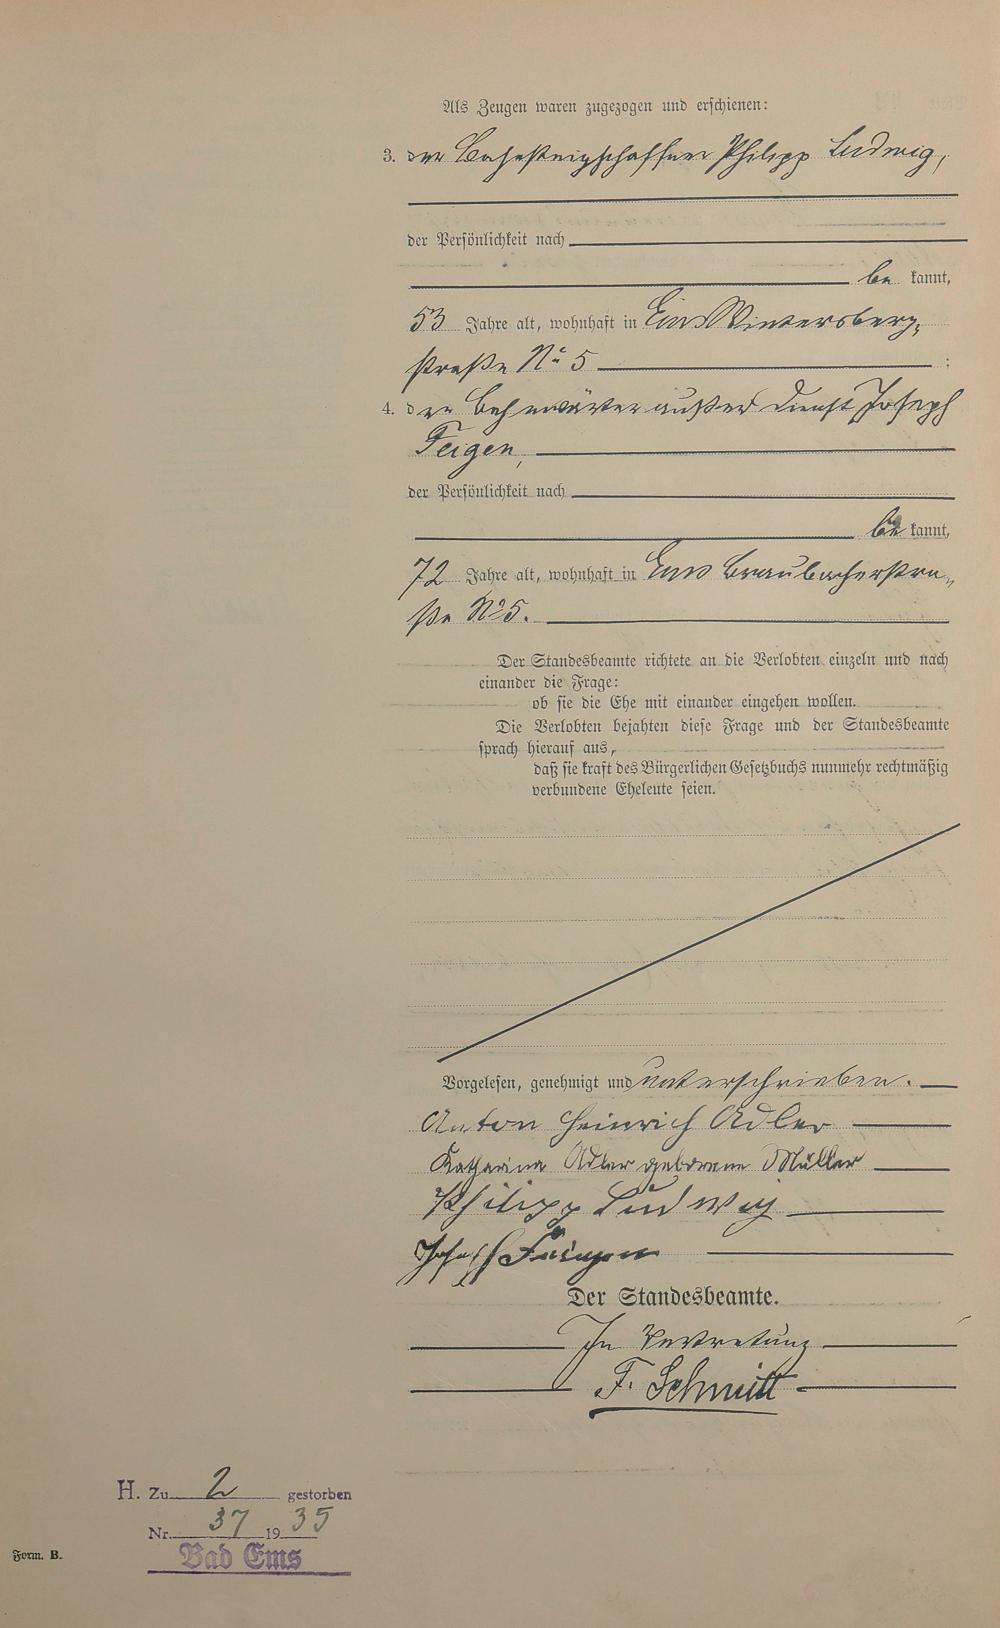 Als Zeugen waren zugezogen und erschienen:
3. der Bahnsteigschaffner Philipp Ludwig,
der Persönlichkeit nach
be kannt,
53 Jahre alt, wohnhaft in Ems Wintersberg,
straße No 5 ;
4. der Bahnwärter außer Dienst Joseph
Feigen,
der Persönlichkeit nach
be kannt,
72 Jahre alt, wohnhaft in Ems Braubacherstra,,
ße No 5.
Der Standesbeamte richtete an die Verlobten einzeln und nach
einander die Frage:
ob sie die Ehe mit einander eingehen wollen.
Die Verlobten bejahten diese Frage und der Standesbeamte
sprach hierauf aus,
daß sie kraft des Bürgerlichen Gesetzbuchs nunmehr rechtmäßig
verbundene Eheleute seien.
Vorgelesen, genehmigt und unterschrieben.
Anton Heinrich Adler
Katharina Adler geborene Müller
Philipp Ludwig
Joseph Feigen
Der Standesbeamte.
In Vertretung
F. Schmitt
H. Zu 2 gestorben
Nr. 37 1935
Bad Ems
Form. B.